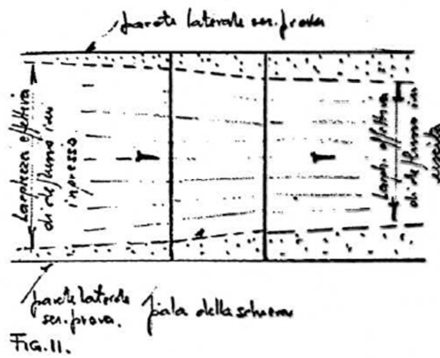 parete laterale sez. prova
Larghezza effettiva
di deflusso in
ingresso
Largh. effettiva
di deflusso in
uscita
parete laterale
sez. prova.
pala della schiera
FIG. 11.